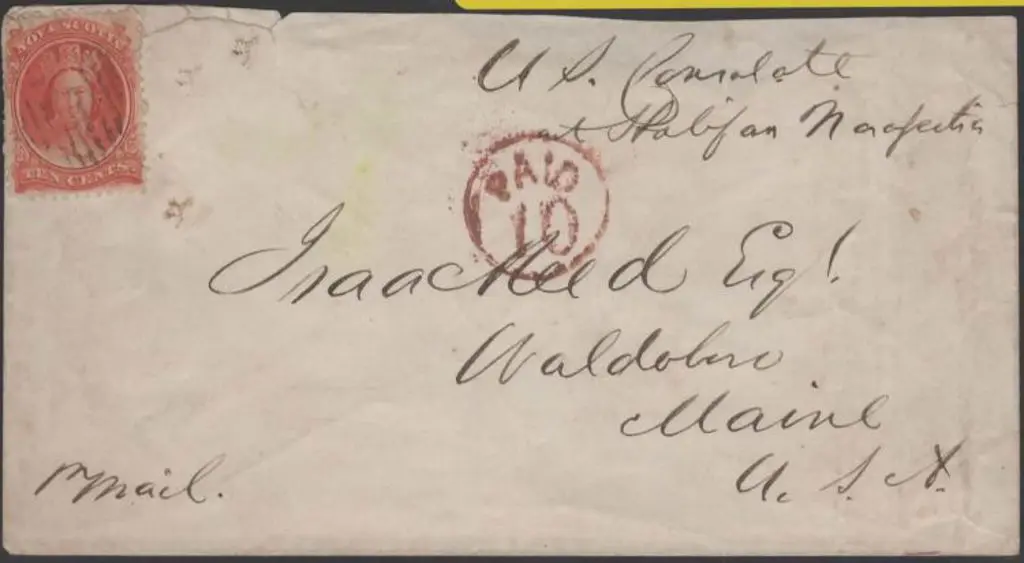 NOVA SCOTIA
TEN CENTS
U S. Consulate
at Halifax Novascotia
PAID
10
Isaac Reed Esq!
Waldoboro
Maine
U. S. A.
pr mail.